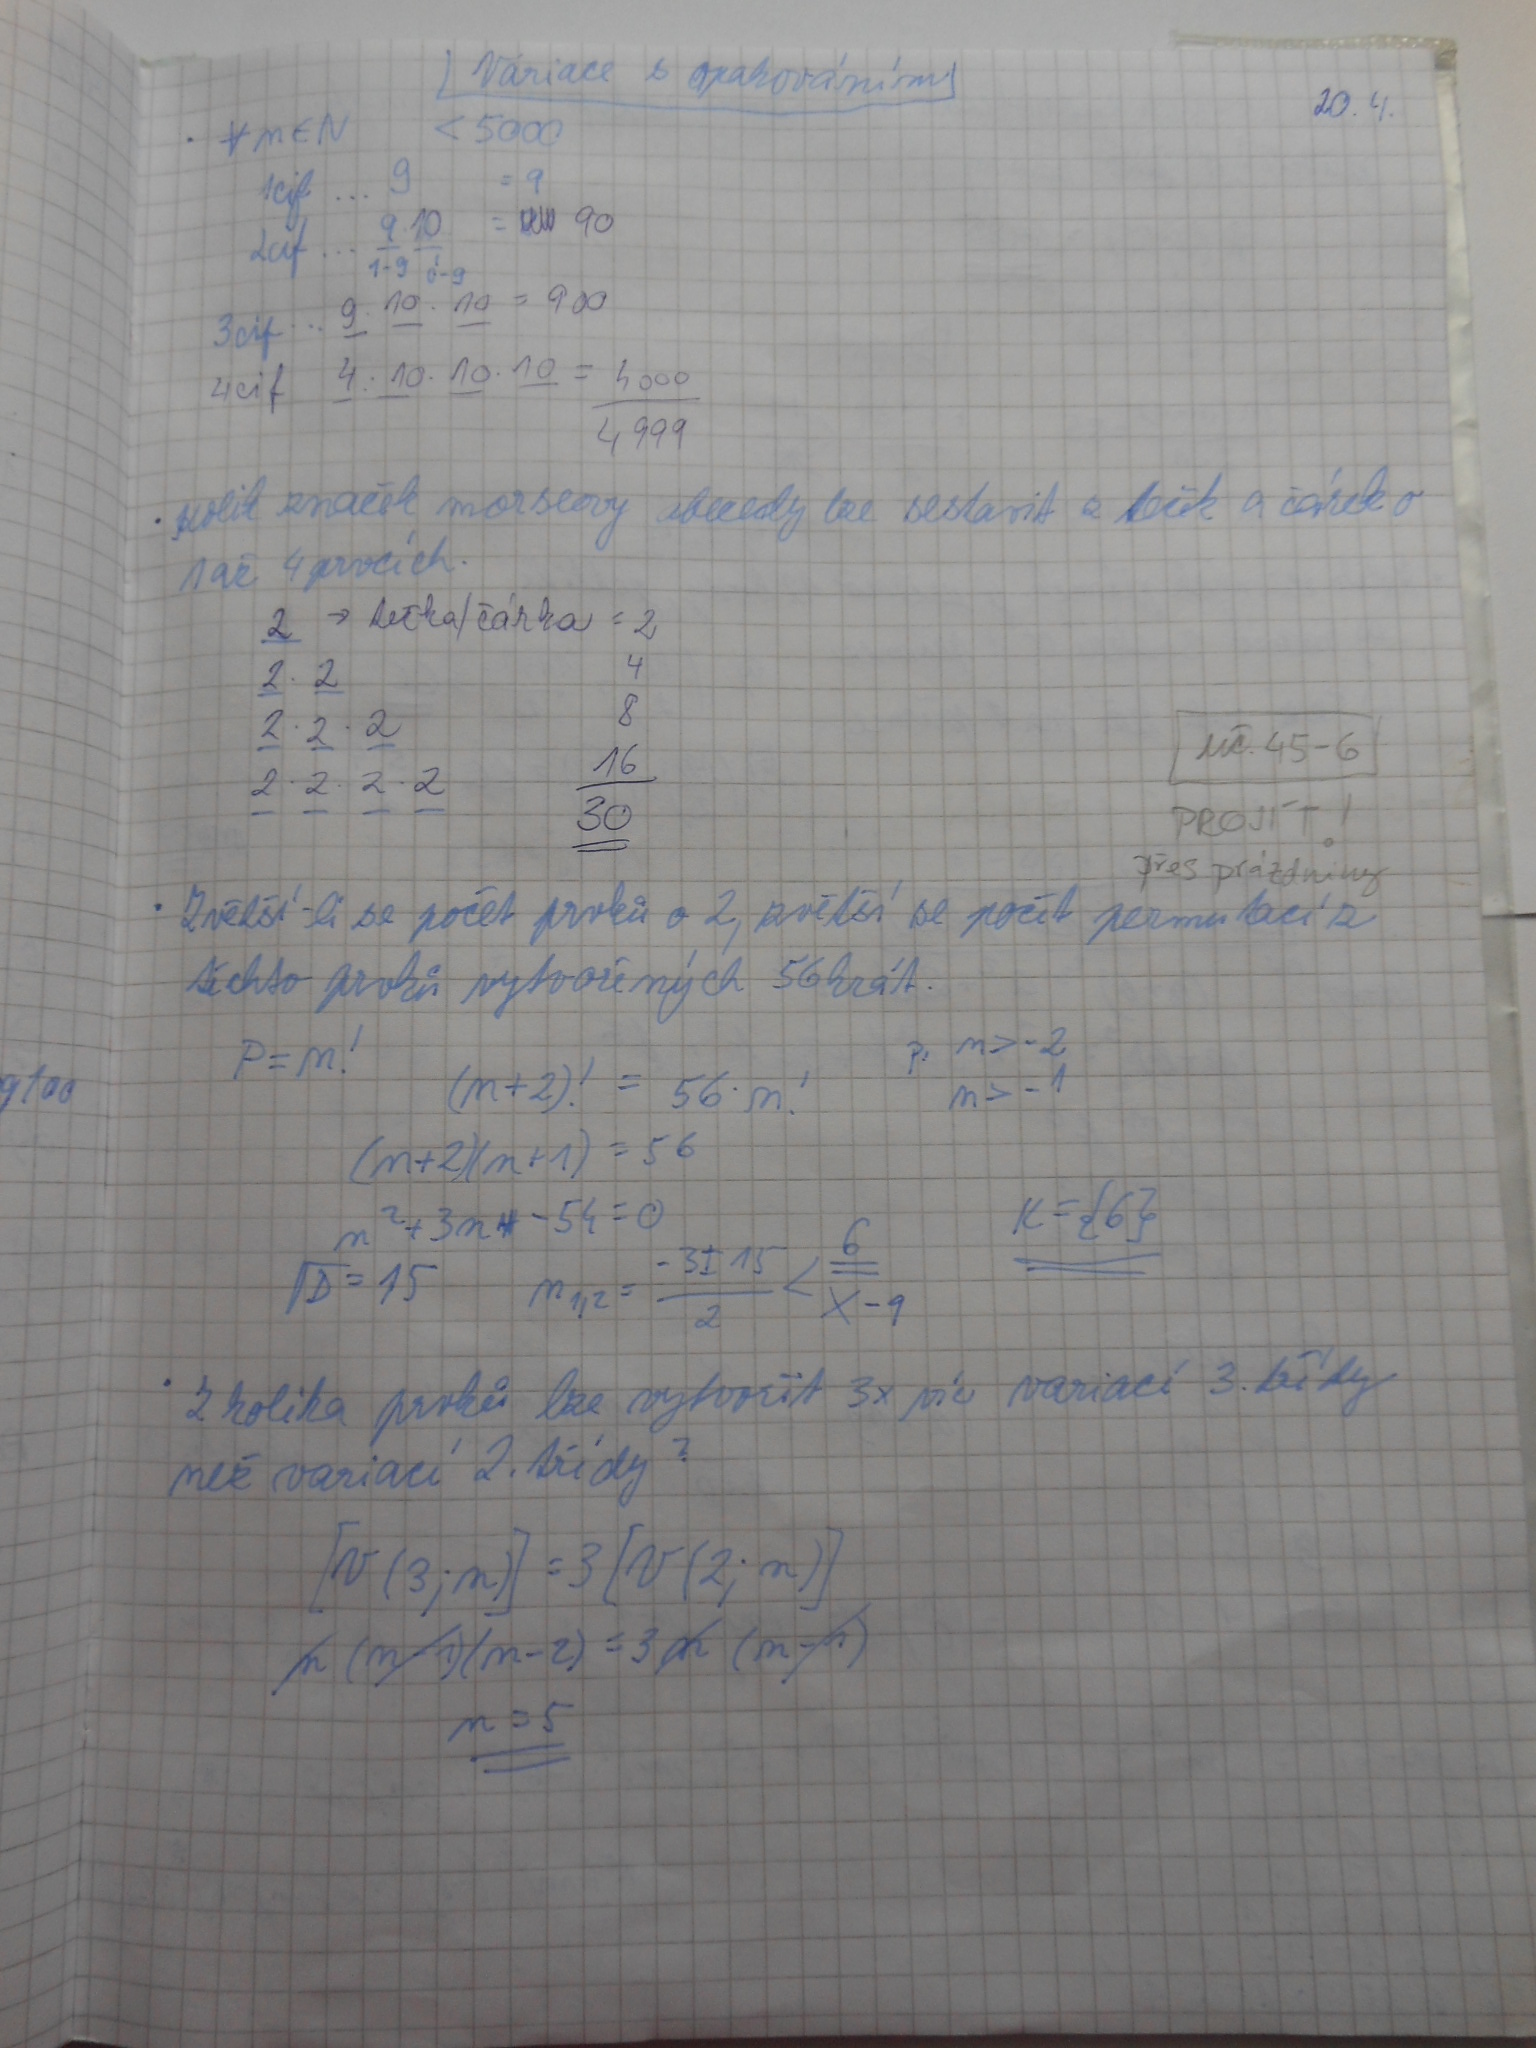 Variace s opakováním
20.4.
• ∀n∈N < 5000
1cif ... 9 = 9
2cif ... 9·10 = 90
1-9 0-9
3cif ... 9·10·10 = 900
4cif 4·10·10·10 = 4000
4999
• kolik značek morseovy abecedy lze sestavit z teček a čárek o
1 až 4 prvcích.
2 → tečka/čárka = 2
2·2 4
2·2·2 8
2·2·2·2 16
30
uč. 45-6
PROJÍT!
přes prázdniny
• Zvětší-li se počet prvků o 2, zvětší se počet permutací z
těchto prvků vytvořených 56krát.
P = n!
(n+2)! = 56·n!
p. n > -2
n > -1
(n+2)(n+1) = 56
n²+3n -54 = 0
√D = 15 n1,2 = (-3±15)/2 < 6
X -9
K = {6}
• Z kolika prvků lze vytvořit 3x víc variací 3. třídy
než variací 2. třídy?
[V(3;n)] = 3[V(2;n)]
n(n-1)(n-2) = 3n(n-1)
n = 5